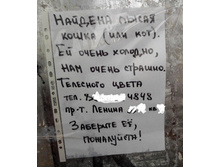 НАЙДЕНА ЛЫСАЯ
КОШКА (ИЛИ КОТ).
ЕЙ ОЧЕНЬ ХОЛОДНО,
НАМ ОЧЕНЬ СТРАШНО.
ТЕЛЕСНОГО ЦВЕТА
ТЕЛ. 8 4848
ПР-Т. ЛЕНИНА
ЗАБЕРИТЕ ЕЁ,
ПОЖАЛУЙСТА!